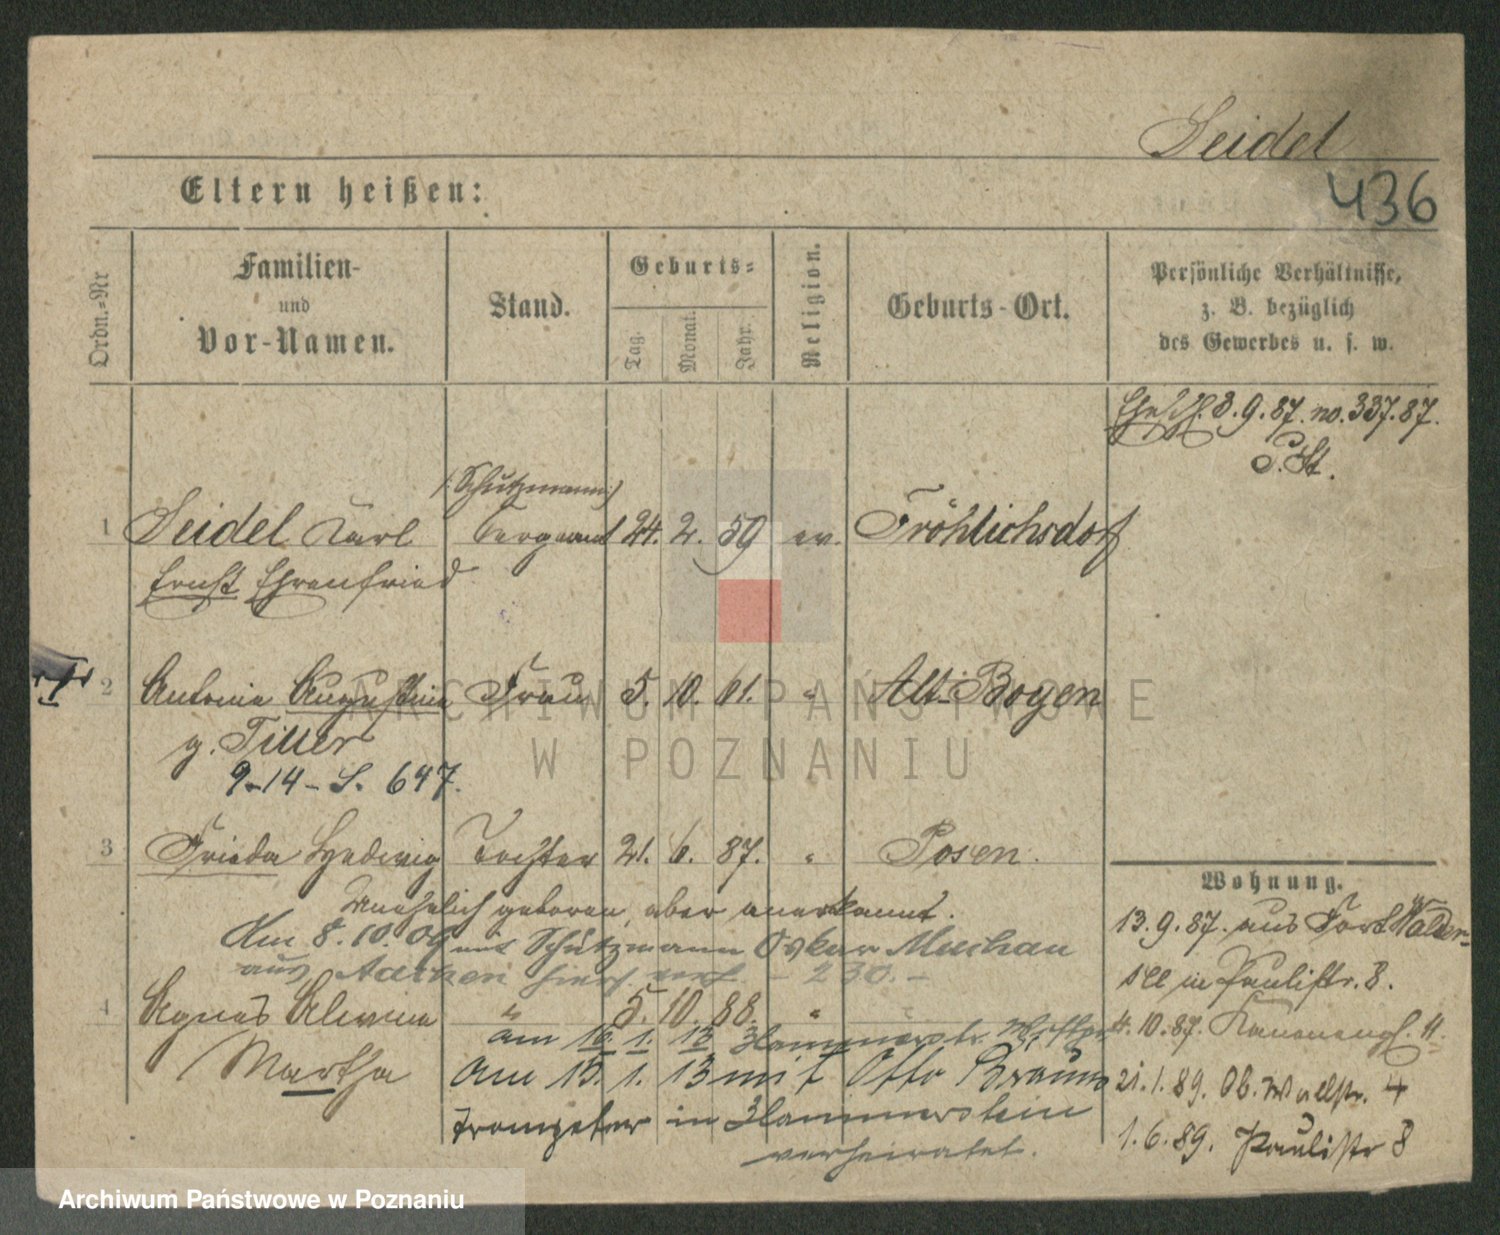 Seidel
436
Eltern heißen:
Ordn.-Nr
Familien-
und
Vor-Namen.
Stand.
Geburts-
Tag.
Monat.
Jahr.
Religion.
Geburts-Ort.
Persönliche Verhältnisse,
z. B. bezüglich
des Gewerbes u. s. w.
8.9.87. no. 337.87.
P. St.
(Schutzmann)
1 Seidel Karl Sergeant 24. 2. 59 ev. Fröhlichsdorf
Ernst Ehrenfried
2 Antonie Augustine Frau 5. 10. 61. " Alt-Boyen
g. Tiller
9-14-S. 647.
3 Frieda Hedwig Tochter 21. 6. 87. " Posen.
unehelich geboren, aber anerkannt.
Am 8.10.09 mit Schutzmann Oskar Muschau
aus Aachen hier verh. - 230. -
4 Agnes Alwine " 5. 10. 88. " "
Martha
am 16. 1. 13 Hammerstein
am 15. 1. 13 mit Otto Braun
Trompeter in Hammerstein
verheiratet.
Wohnung.
13.9.87. aus Fort Walder-
see in Paulistr. 8.
4.10.87. Kanonenpl. 11.
21.1.89. Ob. Wallstr. 4
1.6.89. Paulistr 8
ARCHIWUM PAŃSTWOWE
W POZNANIU
Archiwum Państwowe w Poznaniu